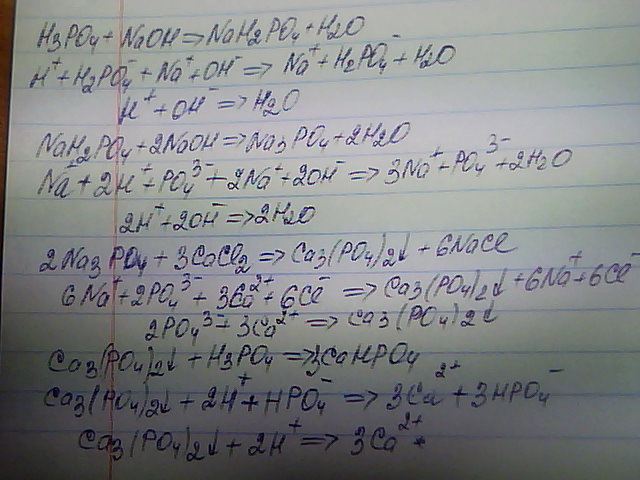 H₃PO₄ + NaOH => NaH₂PO₄ + H₂O
H⁺ + H₂PO₄⁻ + Na⁺ + OH⁻ => Na⁺ + H₂PO₄⁻ + H₂O
H⁺ + OH⁻ => H₂O
NaH₂PO₄ + 2NaOH => Na₃PO₄ + 2H₂O
Na⁺ + 2H⁺ + PO₄³⁻ + 2Na⁺ + 2OH⁻ => 3Na⁺ + PO₄³⁻ + 2H₂O
2H⁺ + 2OH⁻ => 2H₂O
2Na₃PO₄ + 3CaCl₂ => Ca₃(PO₄)₂↓ + 6NaCl
6Na⁺ + 2PO₄³⁻ + 3Ca²⁺ + 6Cl⁻ => Ca₃(PO₄)₂↓ + 6Na⁺ + 6Cl⁻
2PO₄³⁻ + 3Ca²⁺ => Ca₃(PO₄)₂↓
Ca₃(PO₄)₂↓ + H₃PO₄ => 3CaHPO₄
Ca₃(PO₄)₂↓ + 2H⁺ + HPO₄⁻ => 3Ca²⁺ + 3HPO₄⁻
Ca₃(PO₄)₂↓ + 2H⁺ => 3Ca²⁺